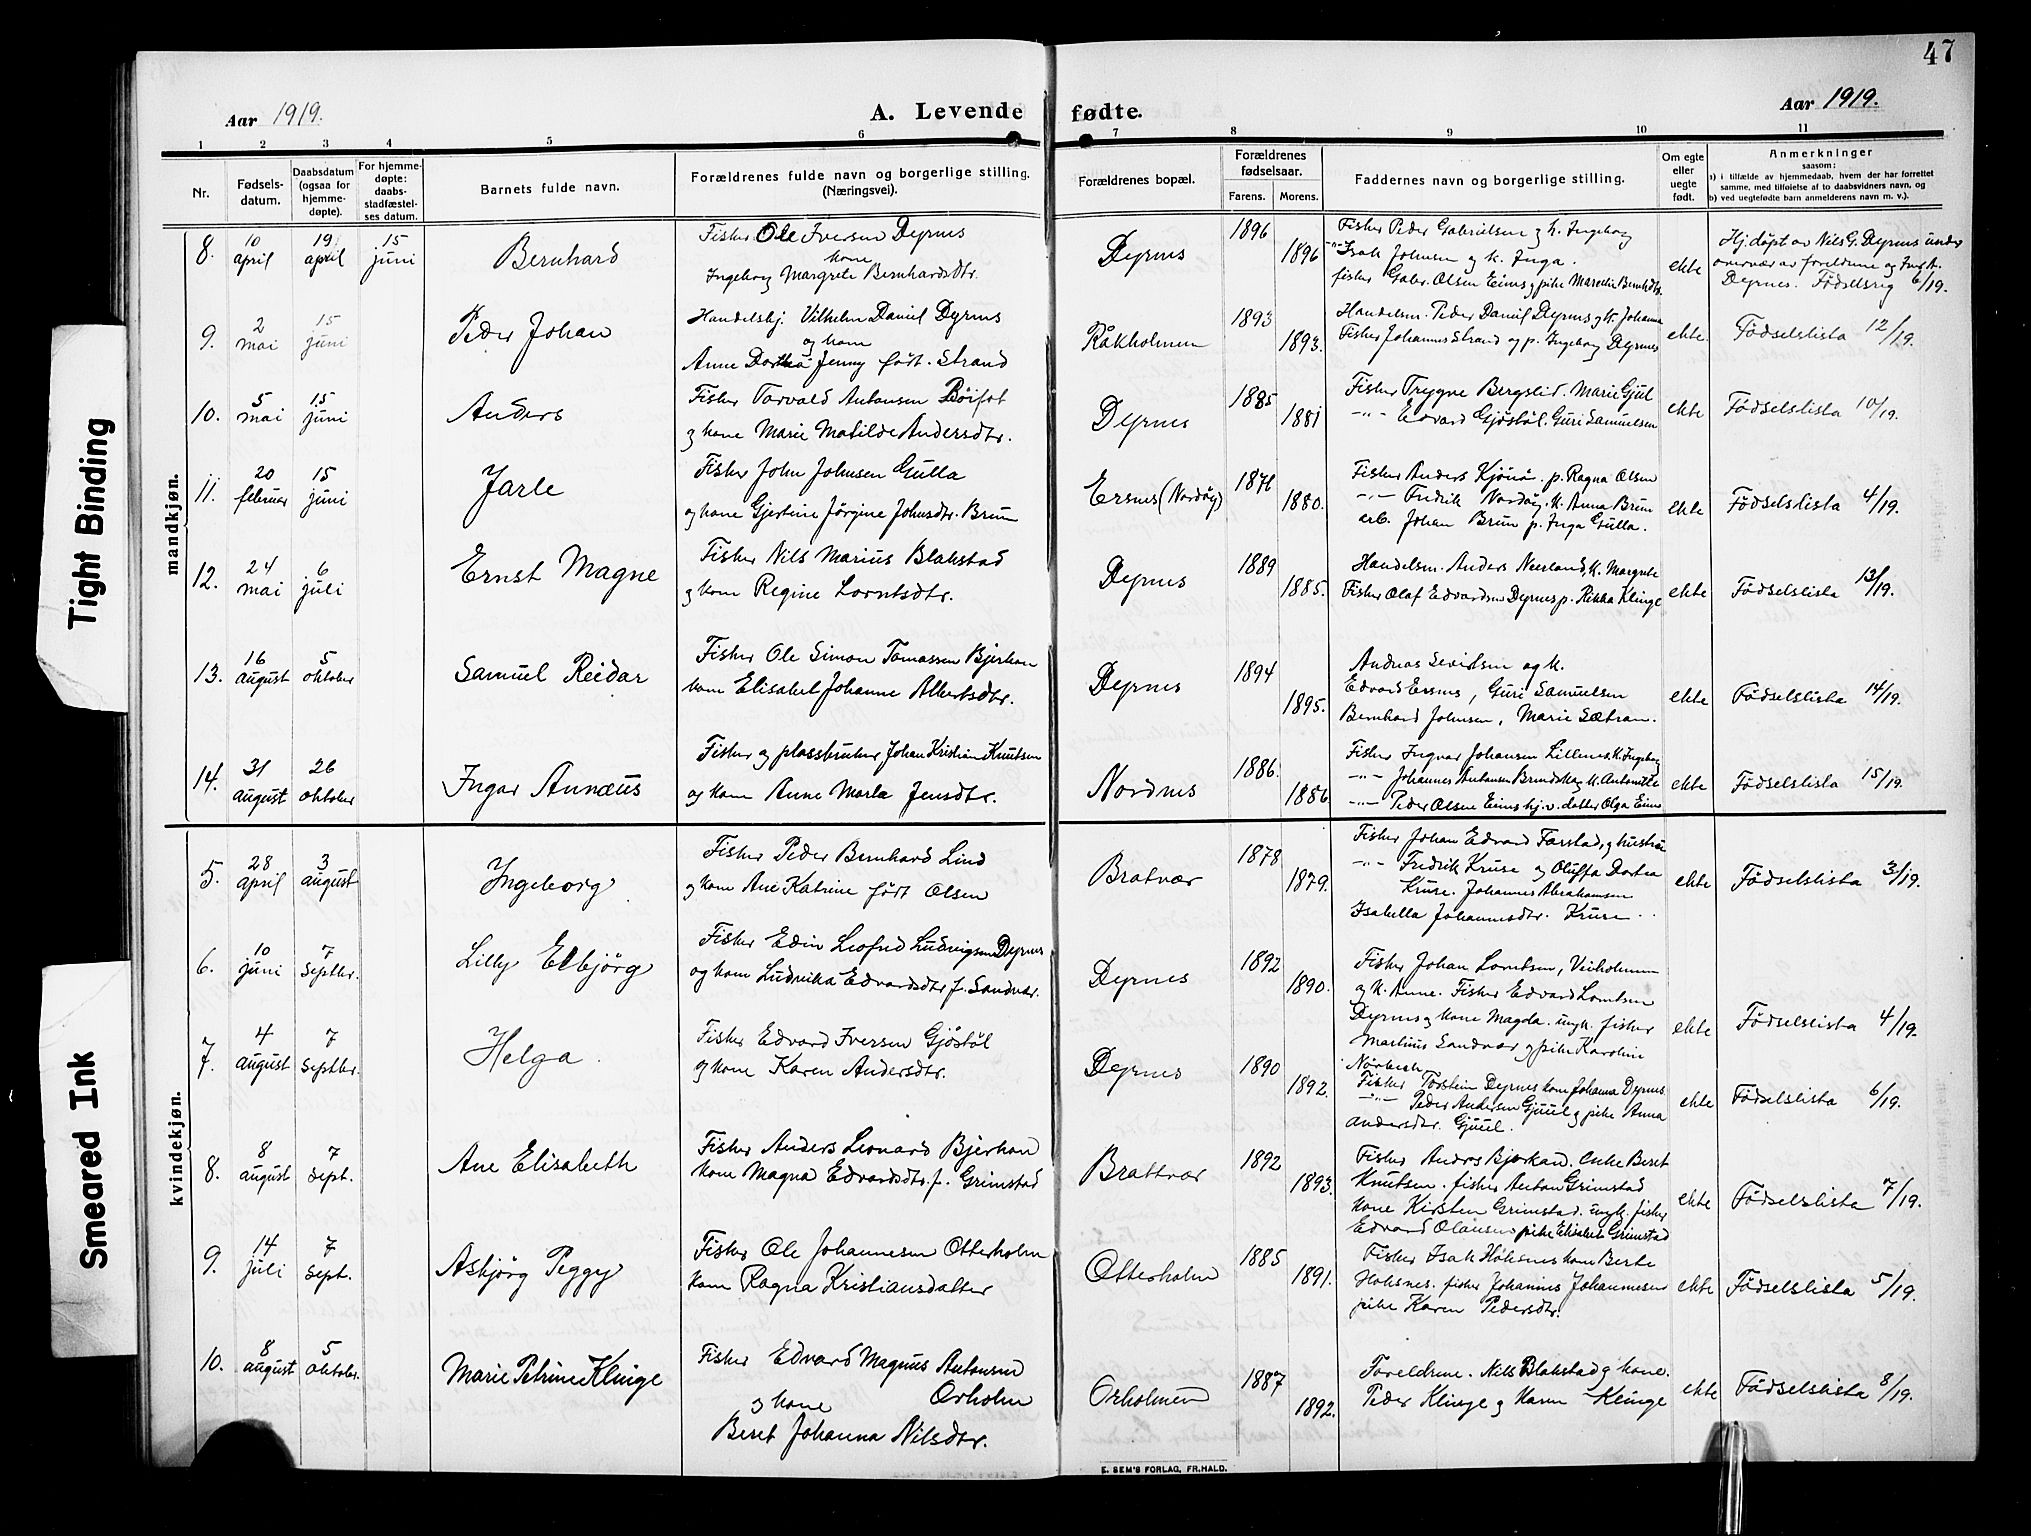 47
Aar 1919.
A. Levende fødte.
Aar 1919.
1 2 3 4 5 6 7 8 9 10 11
Nr.
Fødsels-
datum.
Daabsdatum
(ogsaa for
hjemme-
døpte).
For hjemme-
døpte:
daabs-
stadfæstel-
ses datum.
Barnets fulde navn.
Forældrenes fulde navn og borgerlige stilling.
(Næringsvei).
Forældrenes bopæl.
Forældrenes
fødselsaar.
Farens. Morens.
Faddernes navn og borgerlige stilling.
Om egte
eller
uegte
født.
Anmerkninger
saasom:
a) i tilfælde av hjemmedaab, hvem der har forrettet
samme, med tilføielse af to daabsvidners navn, og
b) ved uegtefødte barn anmelderens navn m. v.).
Tight Binding
Smeared Ink
mandkjøn.
8. 10 april 19 april 15 juni Bernhard
Fisker Ole Iversen Dyrnes
kone
Ingeborg Margrete Bernhardsdtr.
Dyrnes 1896 1896
Fisker Peder Gabrielsen og k. Ingeborg
-"- Isak Johnsen og k. Inga.
fisker Gabr. Olsen Eines og pike Marcelie Bernhdtr.
ekte
Hj. døpt av Nils G. Dyrnes under
overvær av foreldrene og Ing. A.
Dyrnes. Fødselsreg 6/19.
9. 2 mai 15 juni Peder Johan
Handelsbj. Vilhelm Daniel Dyrnes
og kone
Anne Dorthea Jenny født Strand
Råkholmen 1893 1893.
Handelsm. Peder Daniel Dyrnes og k. Johanna
Fisker Johannes Strand og p. Ingeborg Dyrnes
ekte. Fødselslista 12/19.
10. 5 mai 15 juni Anders
Fisker Torvald Antonsen Böifot
og kone Marie Matilde Andersdtr.
Dyrnes 1885 1881
Fisker Trygve Bergslid. Marie Gjul
-"- Edvard Gjøstøl. Guri Samuelsen
ekte Fødselslista 10/19.
11. 20 februar 15 juni Jarle
Fisker John Johnsen Gulla
og kone Gjertine Jörgine Johnsdtr. Brun
Ersnes (Nordöy) 1876 1880.
Fisker Anders Kjönö. p. Ragna Olsen
-"- Fredrik Nordöy. k. Anna Brun
arb. Johan Brun p. Inga Gulla.
ekte Fødselslista 4/19.
12. 24 mai 6 juli Ernst Magne
Fisker Nils Marius Blakstad
og kone Regine Lorntsdtr.
Dyrnes 1889 1885.
Handelsm. Anders Neerland, k. Margrete
Fisker Olaf Edvardsen Dyrnes p. Rikka Klinge
ekte Fødselslista 13/19.
13. 16 august 5 oktober Samuel Reidar
Fisker Ole Simon Tomassen Bjerkan
kone Elisabet Johanne Albertsdtr.
Dyrnes 1894 1895.
Andreas Sevirdsen og k.
Edvard Ersnes, Guri Samuelsen
Bernhard Johnsen, Marie Sætran.
ekte Fødselslista 14/19.
14. 31 august 26 oktober Ingar Annæus
Fisker og plassbruker Johan Kristian Knutsen
og kone Anne Marta Jensdtr.
Nordnes 1886. 1886
Fisker Ingvar Johansen Lillenes k. Ingeborg
-"- Johannes Antonsen Brendskag k. Antonette
-"- Peder Olsen Eines hj.v. datter Olga Eines
ekte Fødselslista 15/19.
kvindekjøn.
5. 28 april 3 august Ingeborg
Fisker Peder Bernhard Lind
og kone Ane Katrine født Olsen
Bratvær 1878 1879.
Fisker Johan Edvard Farstad, og hustru
-"- Fredrik Kruse og Oluffa Dortea
Kruse. Johannes Abrahamsen
Isabella Johannesdtr. Kruse.
ekte Fødselslista 3/19.
6. 10 juni 7 septbr. Lilly Elbjörg
Fisker Edin Leofred Ludvigsen Dyrnes
og kone Ludvikka Edvardsdtr f. Sandvær.
Dyrnes 1892 1890.
Fisker Johan Lorntsen, Veiholmen
og k. Anne. Fisker Edvard Lorntsen
Dyrnes og kone Magda. ungk. fisker
Martinus Sandvær og pike Karoline
Nörbech
ekte Fødselslista 4/19.
7. 4 august 7 septbr. Helga.
Fisker Edvard Iversen Gjöstöl
og kone Karen Andersdtr.
Dyrnes 1890 1892.
Fisker Torstein Dyrnes kone Johanna Dyrnes
-"- Peder Andersen Gjuul og pike Anna
Andersdtr. Gjuul.
ekte Fødselslista 6/19.
8. 8 august 7 sept. Ane Elisabeth
Fisker Anders Leonard Bjerkan
kone Magna Edvardsdtr. f. Grimstad
Brattvær 1892 1893.
Fisker Anders Bjerkan. enke Beret
Knutsen. fisker Anton Grimstad
kone Kirsten Grimstad. ungk. fisker
Edvard Olausen pike Elisabet Grimstad
ekte Fødselslista 7/19.
9. 14 juli 7 sept. Asbjörg Peggy
Fisker Ole Johannesen Otterholm
kone Ragna Kristiansdatter
Otterholm 1885 1891.
Fisker Isak Holsnes kone Berte
Holsnes. fisker Johannes Johannesen
pike Karen Pedersdtr.
ekte Fødselslista 5/19.
10. 8 august 5 oktober. Marie Petrine Klinge
Fisker Edvard Magnus Antonsen
og kone Orholm
Beret Johanna Nilsdtr.
Orholmen 1887 1892.
Foreldrene. Nils Blakstad og kone.
Peder Klinge og Karen Klinge
ekte Fødselslista 8/19.
E. SEM'S FORLAG, FR.HALD.